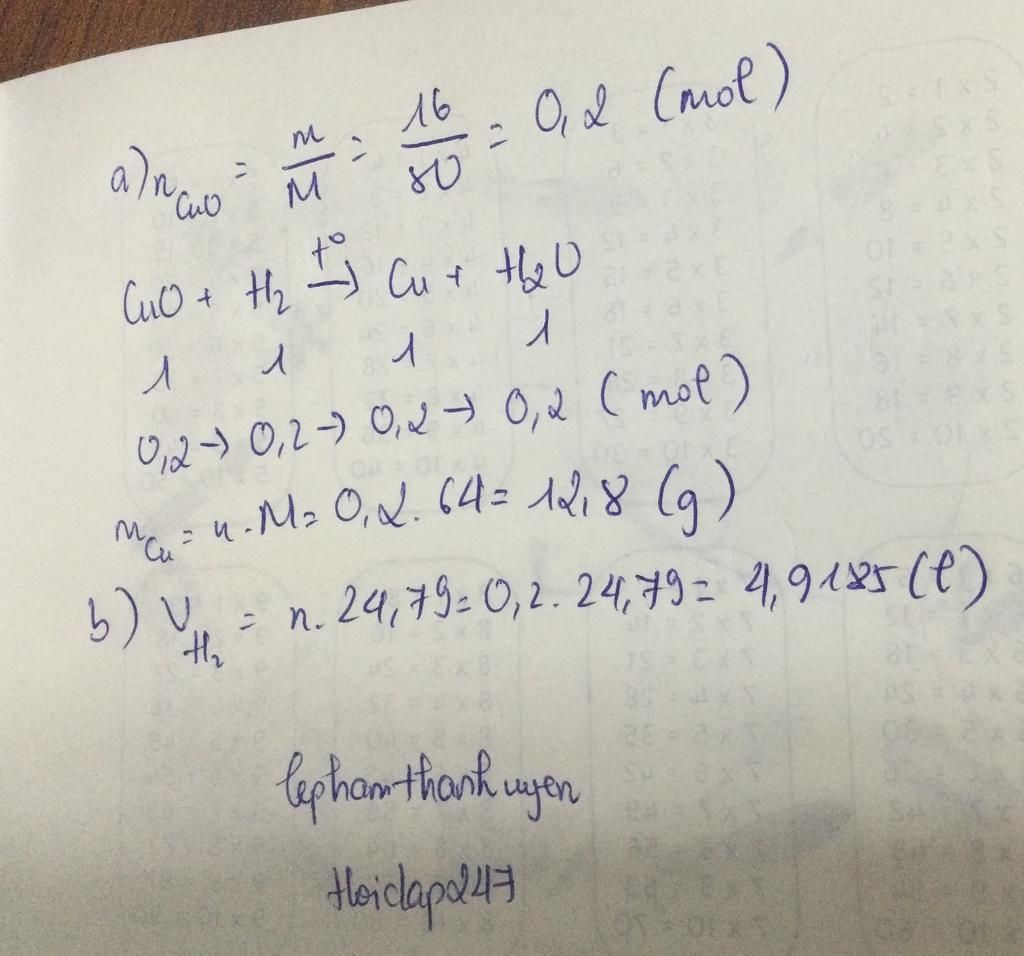 a) n CuO = m/M = 16/80 = 0,2 (mol)
CuO + H2 t° → Cu + H2O
1 1 1 1
0,2 → 0,2 → 0,2 → 0,2 (mol)
m Cu = n . M = 0,2 . 64 = 12,8 (g)
b) V H2 = n . 24,79 = 0,2 . 24,79 = 4,9185 (l)
lephamthanhuyen
Hoidap247